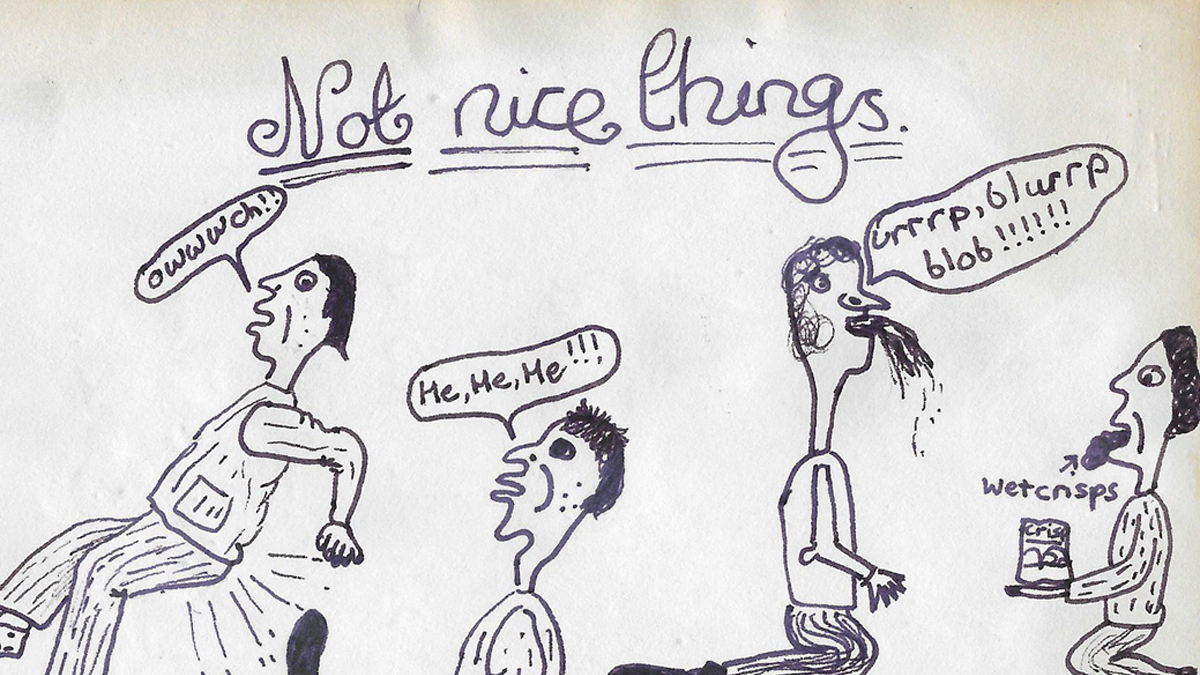 Not nice things.
owwwch!!
He, He, He!!!
urrrp, blurrp
blob!!!!!!
Wetcrisps
Crisp